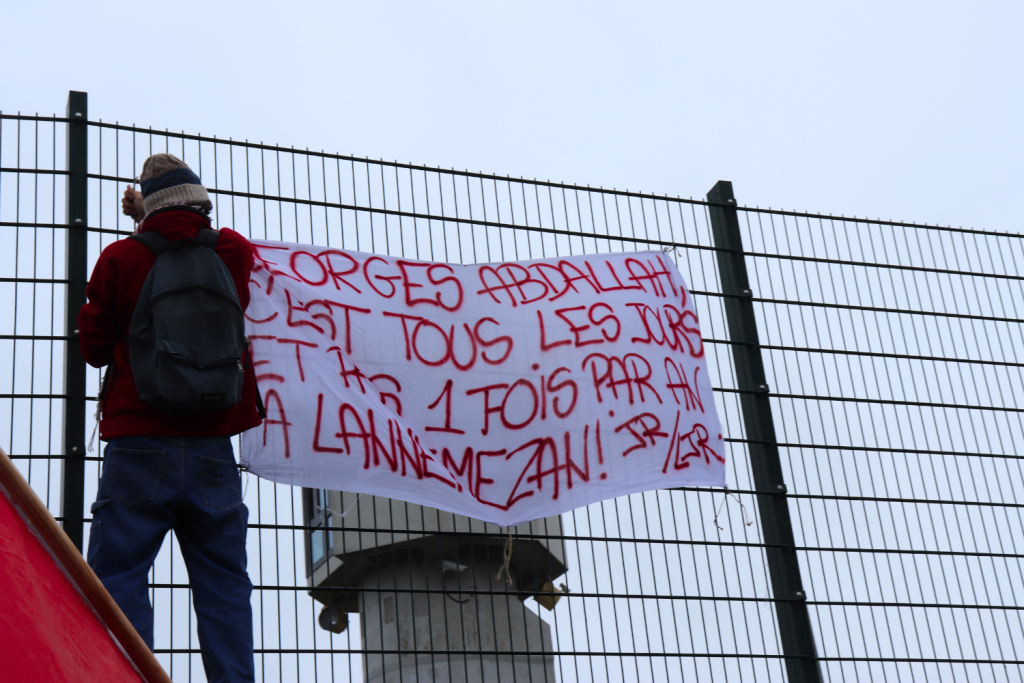 GEORGES ABDALLAH,
C'EST TOUS LES JOURS
ET PAS 1 FOIS PAR AN
A LANNEMEZAN! JR/LJR.